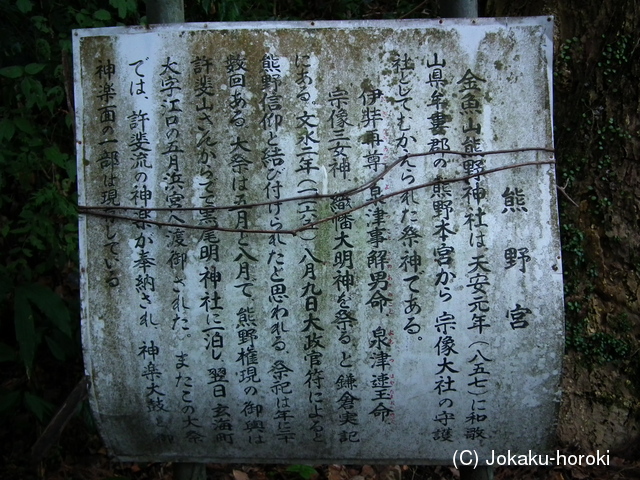 熊野宮
金魚山熊野神社は天安元年(八五七)に和歌
山県牟婁郡の熊野本宮から宗像大社の守護
社としてむかえられた祭神である。
伊弉冉尊、泉津事解男命、泉津速玉命、
宗像三女神、織幡大明神を祭ると鎌倉実記
にある。文永二年(一二六五)八月九日大政官符によると
熊野信仰と結び付けられたと思われる、祭祀は年に二十
数回ある。大祭は五月と八月で、熊野権現の御輿は
許斐山さんからてて高尾明神社に一泊し、翌日玄海町
大字江口の五月浜宮へ渡御された。またこの大祭
では、許斐流の神楽が奉納され、神楽太鼓と
神楽面の一部は現している
(C) Jokaku-horoki